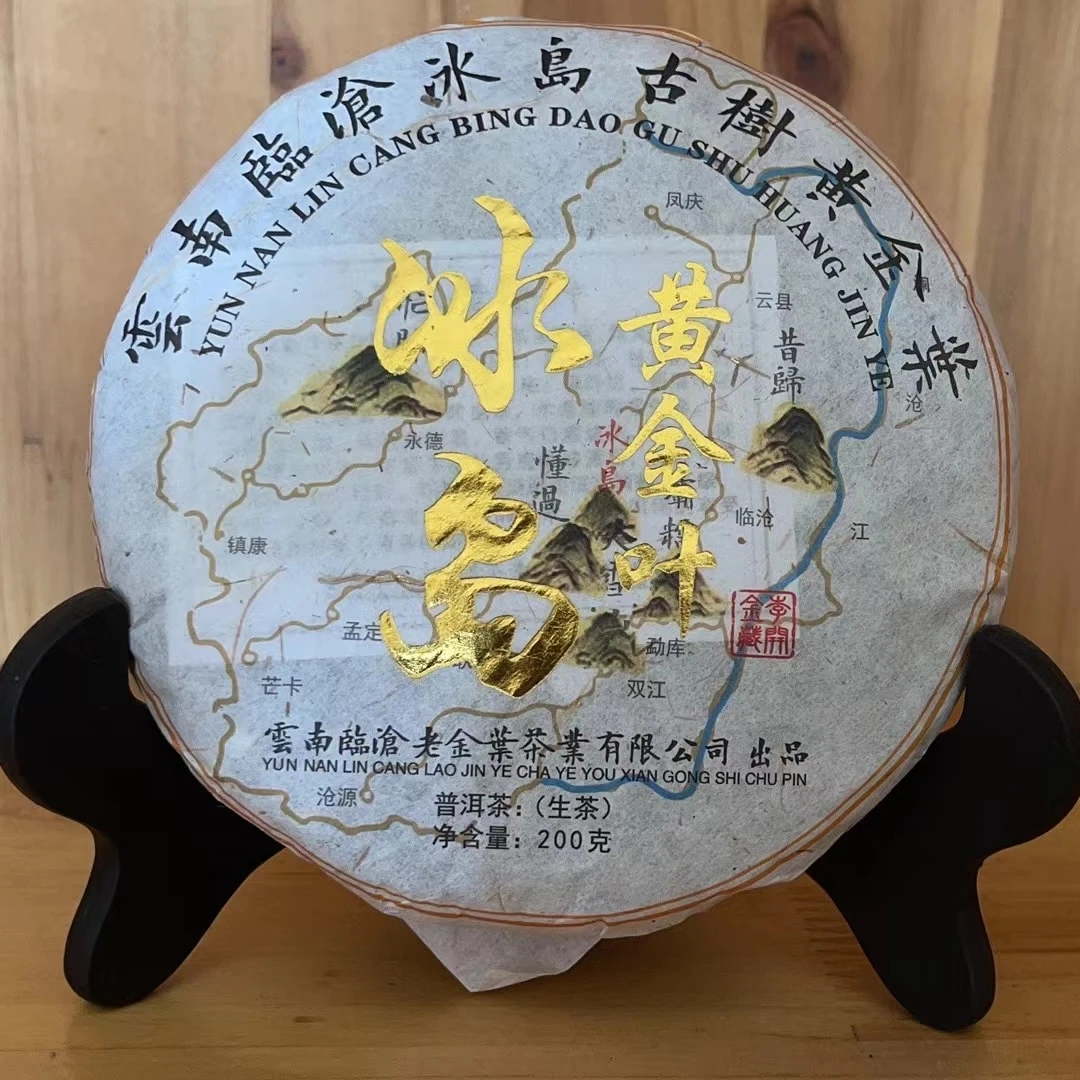 雲南臨滄冰島古樹黃金葉
YUN NAN LIN CANG BING DAO GU SHU HUANG JIN YE
冰島
黄金叶
凤庆
云县
昔歸
永德
冰島
懂過
沧
江
临沧
镇康
大雪
孟定
勐库
双江
芒卡
李開
金藏
雲南臨滄老金葉茶業有限公司 出品
YUN NAN LIN CANG LAO JIN YE CHA YE YOU XIAN GONG SHI CHU PIN
沧源
普洱茶：（生茶）
净含量：200克